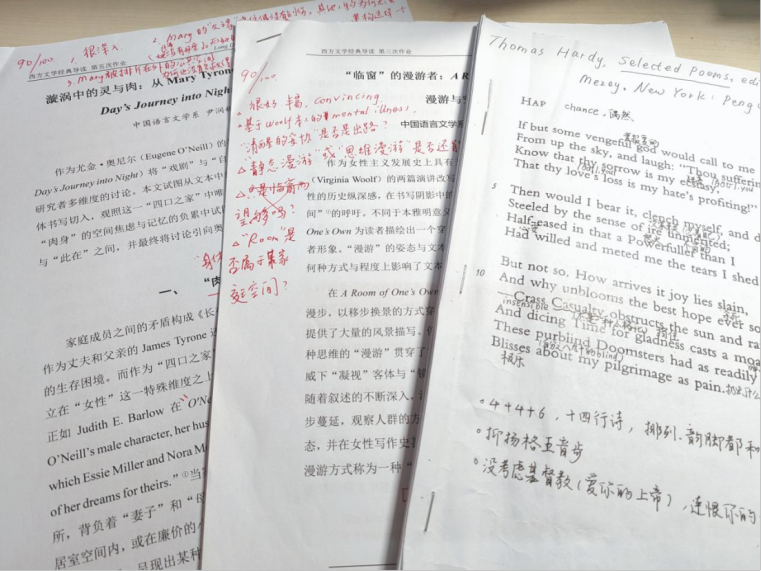 90/100
1. 很深入
2. Mary的
西方文学经典导读 第三次作业
3. Mary被排斥在外
漩涡中的灵与肉：从 Mary Tyrone
Day's Journey into Night
中国语言文学系 尹润
作为尤金·奥尼尔（Eugene O'Neill）的
Day's Journey into Night）将“戏剧”与“自
研究者多维度的讨论。本文试图从文本中
体书写切入，观照这一“四口之家”中唯
“肉身”的空间焦虑与记忆的负累中试
与“此在”之间，并最终将讨论引向奥
“身体
一、 “肉
家庭成员之间的矛盾构成《长
作为丈夫和父亲的 James Tyrone
的生存困境。而作为“四口之家
立在“女性”这一特殊维度之上
正如 Judith E. Barlow 在“O'Ne
O'Neill's male character, her hus
which Essie Miller and Nora M
of her dreams for theirs.”①当
所，背负着“妻子”和“母
居室空间内，或在廉价的
呈现出某种
西方文学经典导读 第三次作业
90/100
“临窗”的漫游者：A R
漫游与
中国语言文学系
很好 丰富，convincing
基于Woolf本人的 mental illness，
是否是出路？
△“静态漫游”或“思维漫游”是否还能
只是临窗而
望够吗？
△“Room”是
否属于某家
庭空间？
作为女性主义发展史上具有
（Virginia Woolf）的两篇演讲改写
性的历史纵深感，在书写阴影中的
间”①的呼吁。不同于本雅明意义
One's Own 为读者描绘出一个
者形象。“漫游”的姿态与文本
何种方式与程度上影响了文本
在 A Room of One's Own
漫步，以移步换景的方式穿
提供了大量的风景描写。
种思维的“漫游”贯穿了
威下“凝视”客体与“
随着叙述的不断深入，
步蔓延，观察人群的方
态，并在女性写作史
漫游方式称为一种“
Thomas Hardy, Selected Poems, edi
Mezey. New York: Peng
HAP chance. 偶然.
If but some vengeful god would call to me
From up the sky, and laugh: “Thou suffering
Know that thy sorrow is my ecstasy,
That thy love's loss is my hate's profiting!”
5 Then would I bear it, clench myself, and d
Steeled by the sense of ire unmerited;
Half-eased in that a Powerfuller than I
Had willed and meted me the tears I shed
But not so. How arrives it joy lies slain,
10 And why unblooms the best hope ever so
insensible
—Crass Casualty obstructs the sun and ra
And dicing Time for gladness casts a moa
These purblind Doomsters had as readily
Blisses about my pilgrimage as pain.
极乐
。4+4+6，十四行诗，排列、韵脚都和
。抑扬格五音步
。没考虑基督教（爱你的上帝），连恨你的